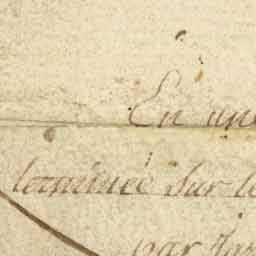 En une
terminée sur le
par